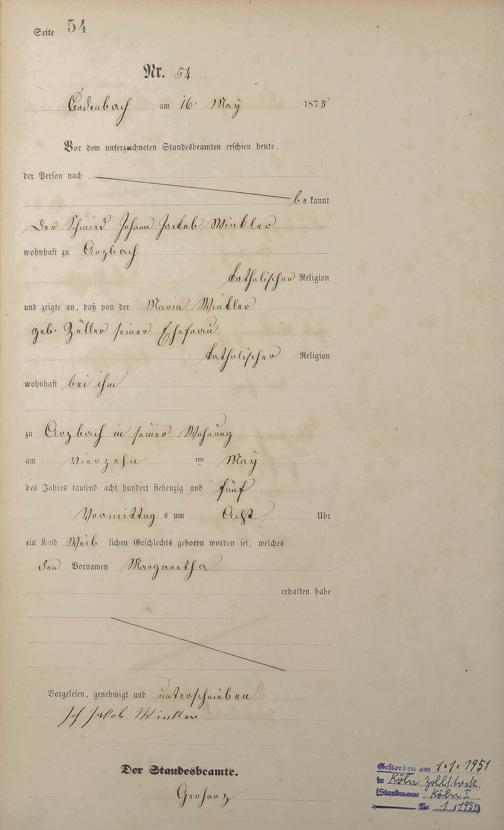 Seite 54
Nr. 54
Cadenbach am 16. May 1875
Vor dem unterzeichneten Standesbeamten erschien heute,
der Person nach
bekannt
Der Schmied Johann Jackob Winkler
wohnhaft zu Arzbach
katholischer Religion
und zeigte an, daß von der Maria Winkler
geb. Züller seiner Ehefrau
katholischer Religion
wohnhaft bei ihm
zu Arzbach in seiner Wohnung
am vierzehn ten May
des Jahres tausend acht hundert siebenzig und fünf
Vormittag s um Acht Uhr
ein Kind Weib lichen Geschlechts geboren worden sei, welches
den Vornamen Margaretha
erhalten habe
Vorgelesen, genehmigt und unterschrieben
Joh Jakob Winkler
Der Standesbeamte.
Gerharz
Gestorben am 1.1.1951
in Köln Zollstock
(Standesamt Köln I
Nr. 1/1951)